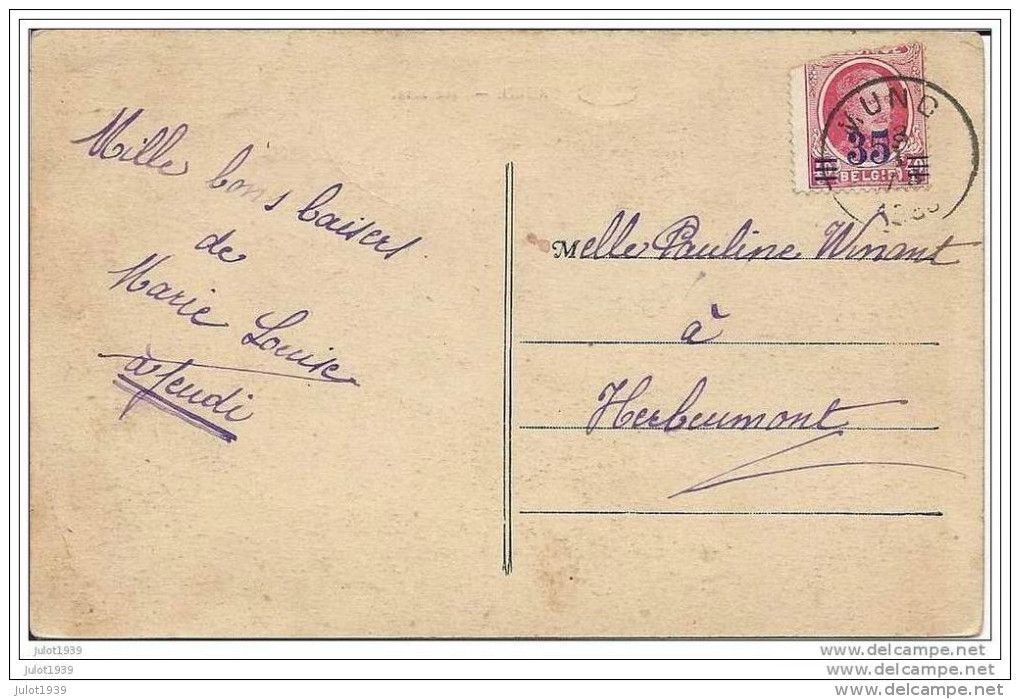 Mille bons baisers
de
Marie Louise
à Jeudi
35
BELGIE
Melle Pauline Winant
à
Herbeumont
julot1939
julot1939
julot1939
www.delcampe.net
www.delcampe.net
www.delcampe.net